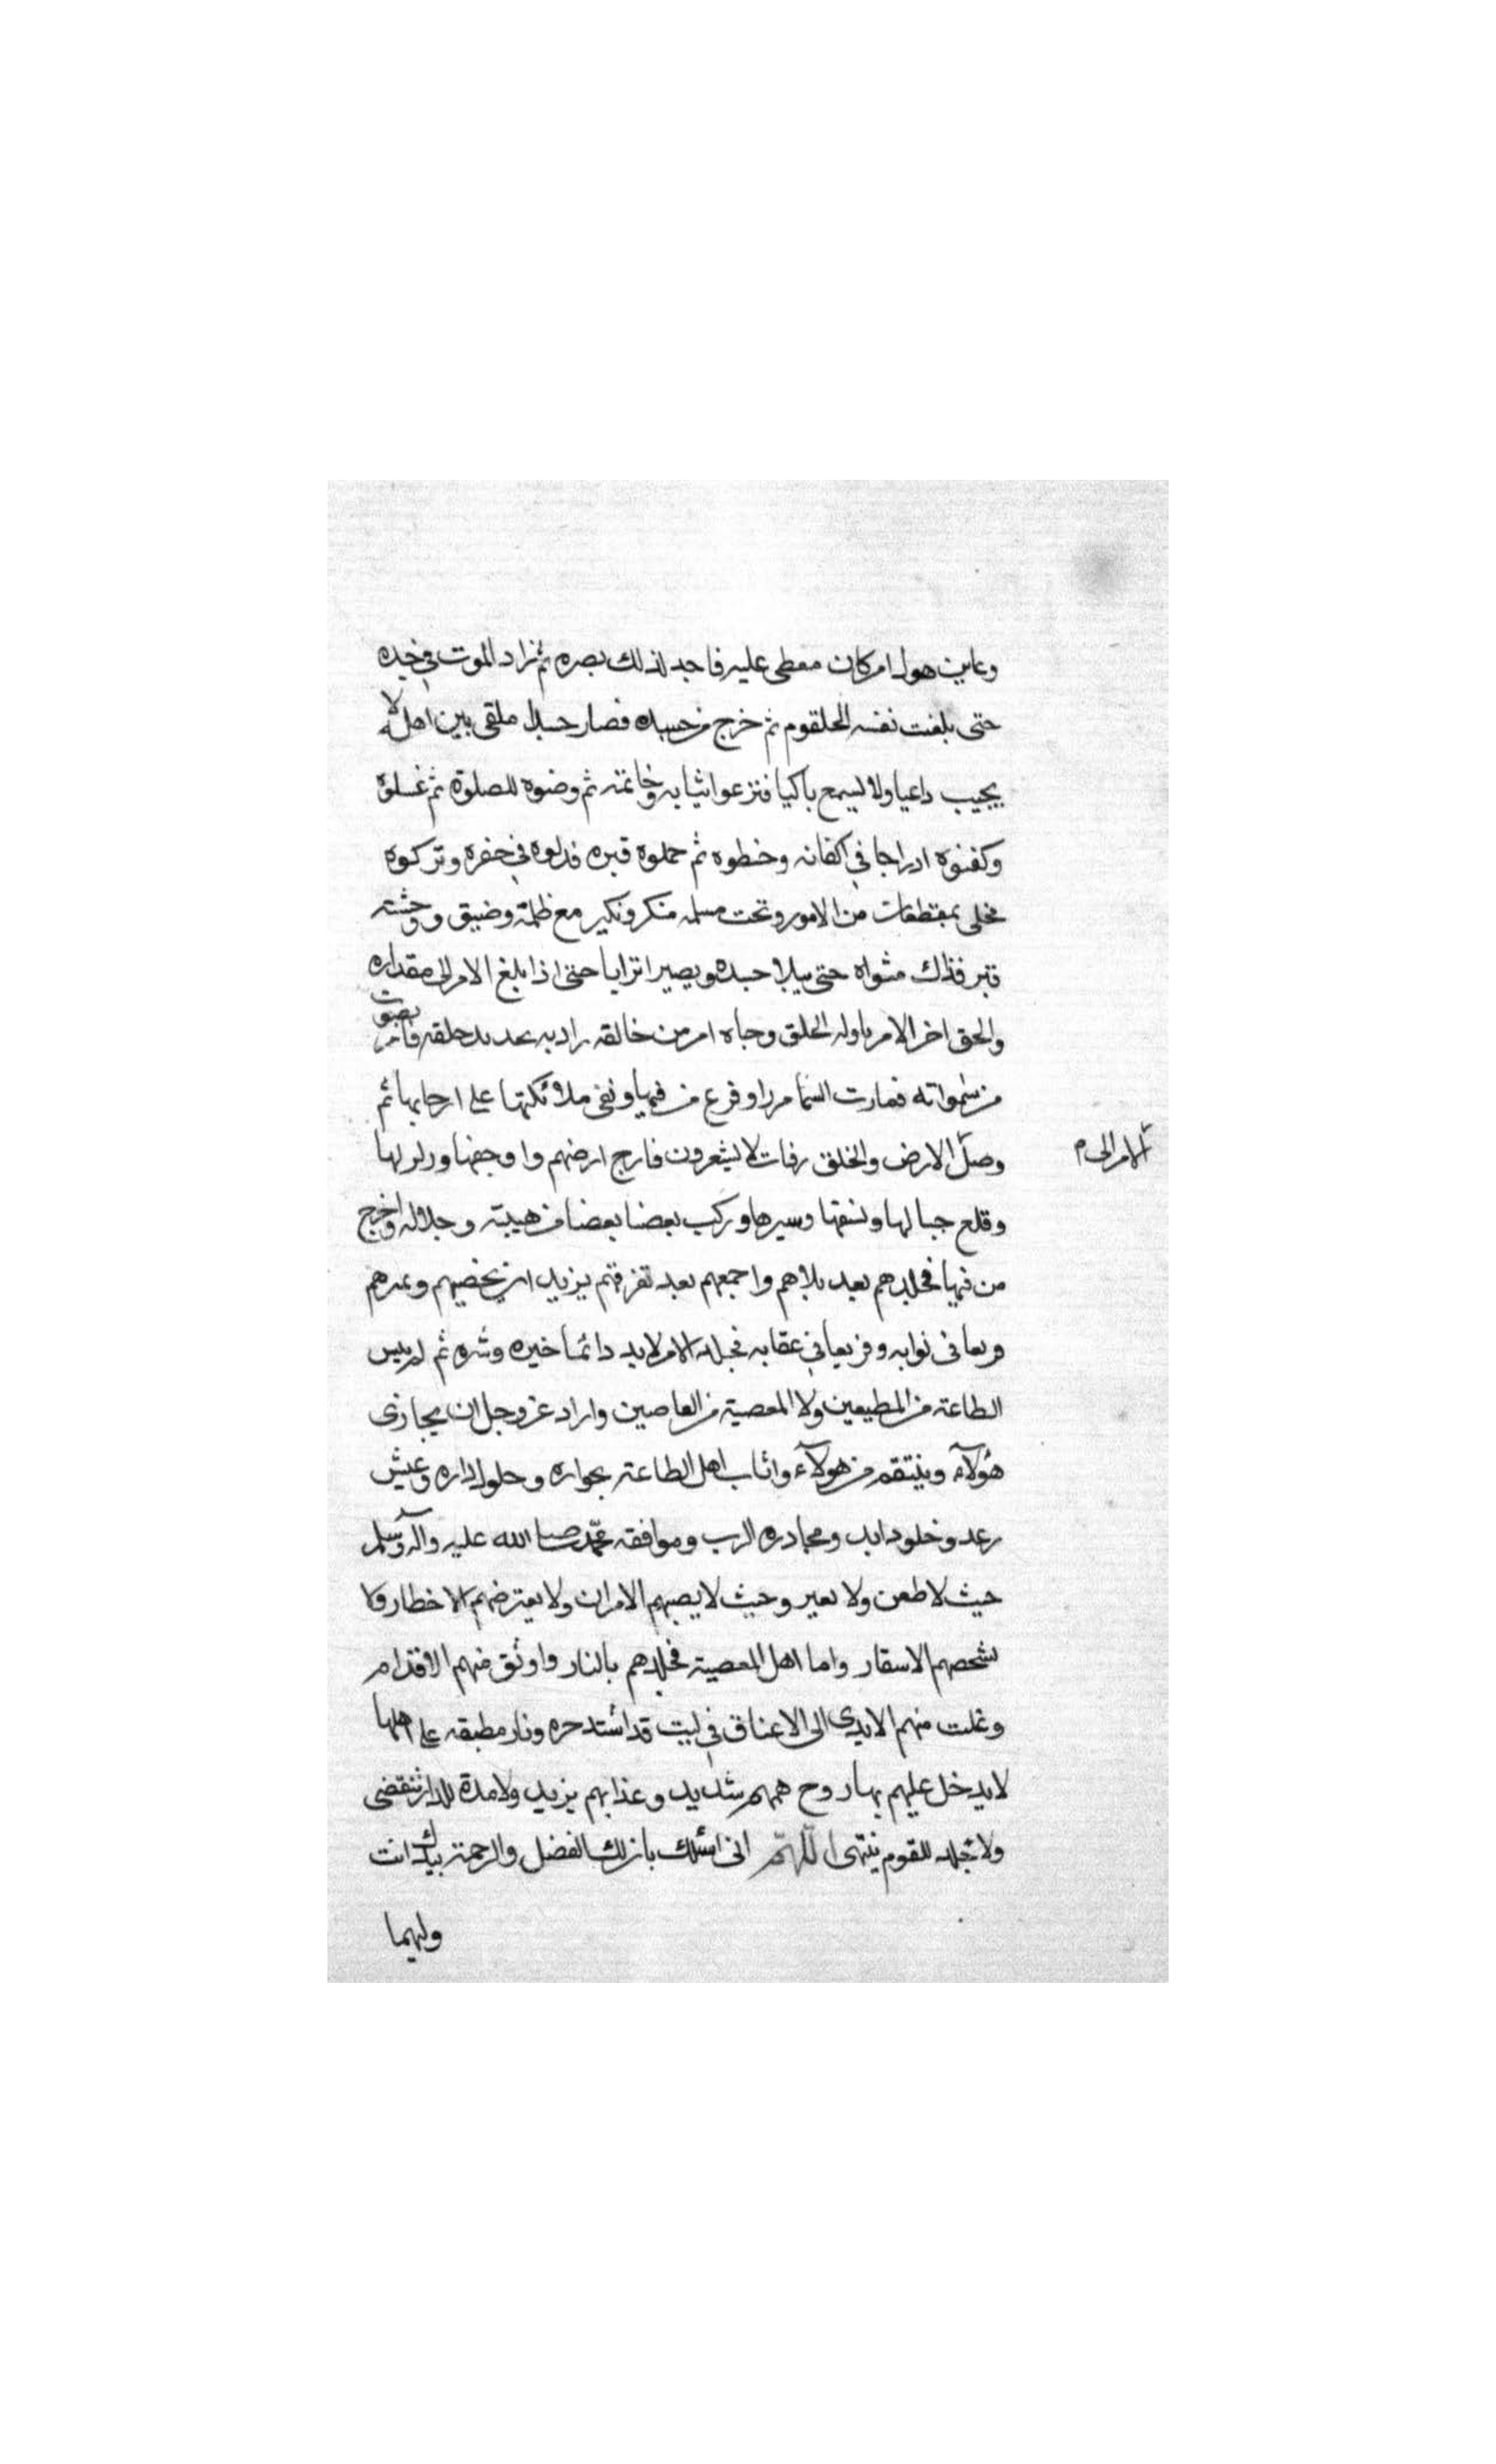 وعاين هول امر كان مغطى عليه فاحد لذلك بصره ثم زاد الموت في جده
حتى بلغت نفسه الحلقوم ثم خرج من جسده فصار جسدا ملقى بين اهله لا
يجيب داعيا ولا يسمع باكيا فنزعوا ثيابه وخاتمه ثم وضوه للصلوة ثم غسلوه
وكفنوه ادراجا في اكفانه وحنطوه ثم حملوه قبره فدلوه في حفره وتركوه
مخلى بمقطعات من الامور وتحت مسلة منكر ونكير مع ظلمة وضيق ووحشة
قبر فذاك مثواه حتى يبلا جسده ويصير ترابا حتى اذا بلغ الامر الى مقداره
والحق اخر الامر باوله الخلق وجاه امر من خالقه اراد به تجديد خلقه فامر بصوت
من سمواته فمارت السما مورا وفزع من فيها وبقى ملائكتها على ارجايها ثم
وصل الارض والخلق رفات لا يشعرون فارج ارضهم وارجفها وزلزلها
الامر الى م
وقلع جبالها ونسفها وسيرها وركب بعضا بعضا من هيبته وجلاله واخرج
من فيها فجلدهم بعد بلاهم واجمعهم بعد تفرقهم يزيد ان يحصيهم وعدهم
فريقا في ثوابه وفريقا في عقابه فخلد الامر لابد دائما خيره وشره ثم لم ينس
الطاعة من المطيعين ولا المعصية من العاصين واراد عز وجل ان يجازى
هؤلاء وينتقم من هولاء واثاب اهل الطاعة بجواره وحلول داره وعيش
رغد وخلود ابد ومجاوره الرب وموافقه محمد صلى الله عليه وآله وسلم
حيث لا طعن ولا تغير وحيث لا يصبهم الامران ولا يعترضهم الاخطار ولا
تشخصهم الاسفار واما اهل المعصية فخلدهم بالنار واوثق منهم الاقدام
وغلت منهم الايدى الى الاعناق في لبيت قد اشتد حره ونار مطبقه على اهلها
لا يدخل عليهم بها روح همهم شديد وعذابهم يزيد ولا مدة للدار تنقضى
ولا مجلد للقوم ينتهى اللهم انى اسئلك بان لك الفضل والرحمة بيدك انت
وليهما